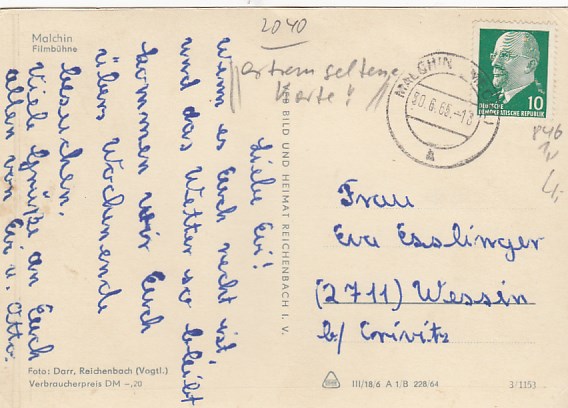 Malchin
Filmbühne
2040
extrem seltene
Karte!
MALCHIN
30.6.65.-18
a
DEUTSCHE
DEMOKRATISCHE REPUBLIK
10
846
Liebe Evi!
wenn es Euch recht ist
und das Wetter so bleibt
kommen wir Euch
übers Wochenende
besuchen.
Viele Grüße an Euch
allen von Evi u. Otto.
VEB BILD UND HEIMAT REICHENBACH I. V.
Frau
Eva Esslinger
(2711) Wessin
b/ Crivitz
Foto: Darr, Reichenbach (Vogtl.)
Verbraucherpreis DM -,20
III/18/6 A 1/B 228/64
3/1153